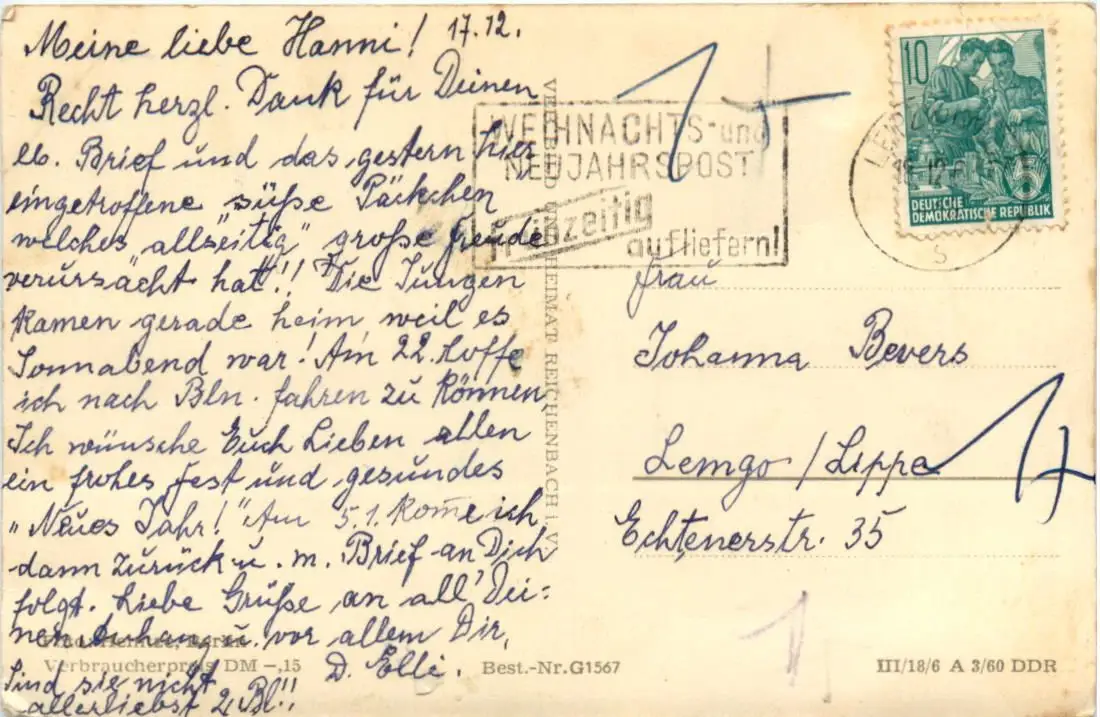 Meine liebe Hanni! 17.12.
Recht herzl. Dank für Deinen
lb. Brief und das gestern hier
eingetroffene "süße Päckchen
welches allzeitig" große Freude
verursacht hat!! Die Jungen
kamen gerade heim, weil es
Sonnabend war! Am 22. hoffe
ich nach Bln. fahren zu können
Ich wünsche Euch Lieben allen
ein frohes Fest und gesundes
"Neues Jahr!" Am 5.1. kom̅e ich
dann zurück u. m. Brief an Dich
folgt. Liebe Grüße an all' Dei:
nen u. vor allem Dir,
D. Elli.
Sind sie nicht
allerliebst 2 Bl!!
Verbraucherpreis DM –,15
Best.-Nr. G1567
III/18/6 A 3/60 DDR
VERLAG HEIMAT REICHENBACH i. V.
WEIHNACHTS- und
NEUJAHRSPOST
frühzeitig
aufliefern!
10
DEUTSCHE
DEMOKRATISCHE REPUBLIK
S
Frau
Johanna Bevers
Lemgo / Lippe
Echternerstr. 35